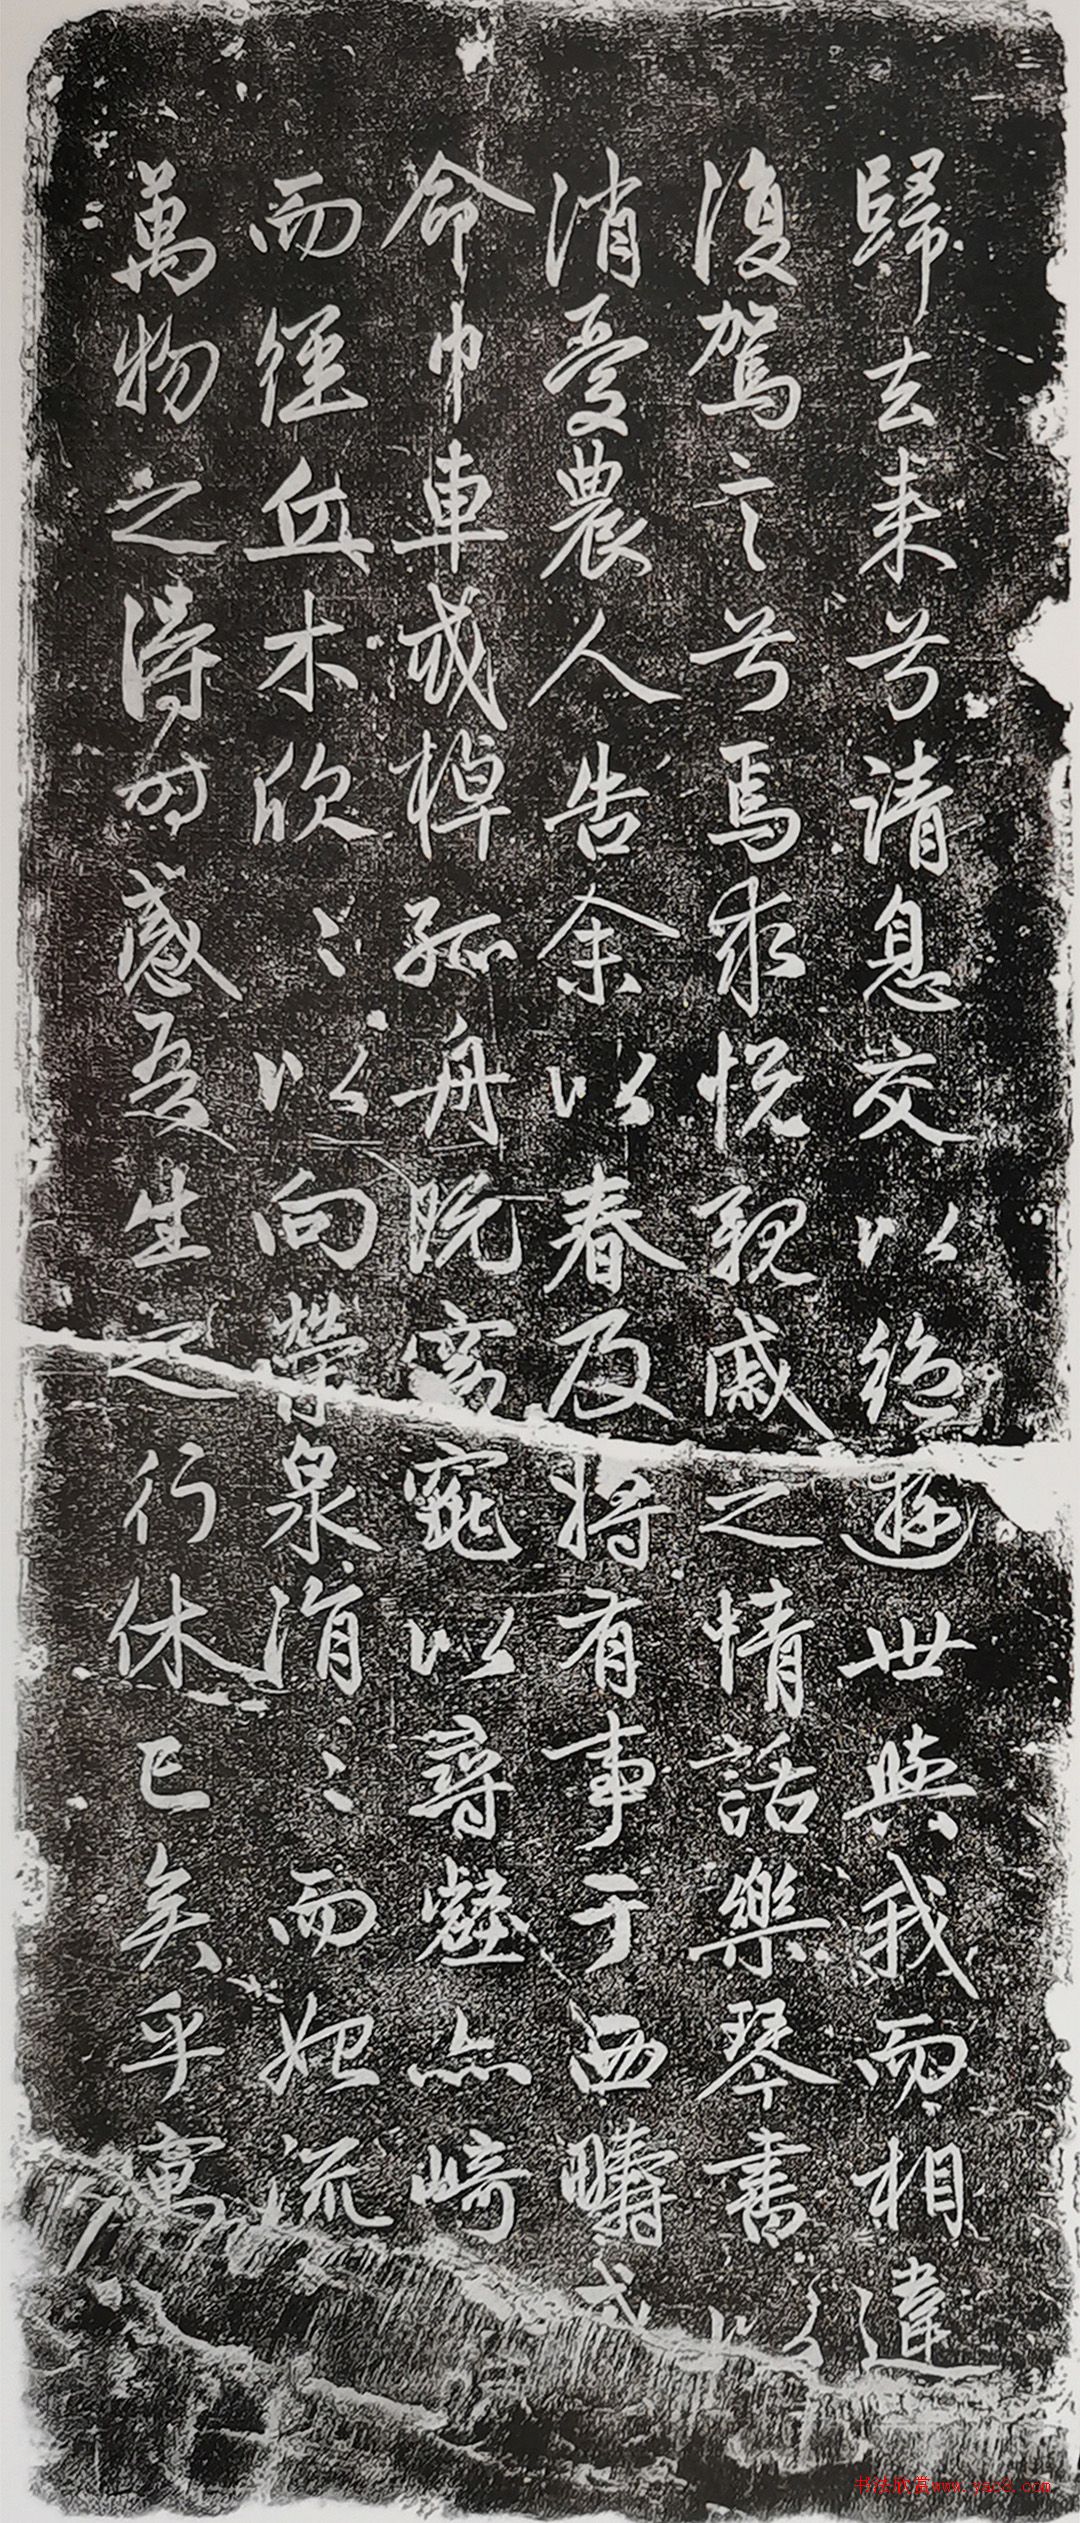 歸去来兮请息交以絶遊世與我而相違
復駕言兮焉求悦親戚之情話樂琴書以
消憂農人告余以春及将有事于西疇或
命巾車或棹孤舟既窈窕以尋壑亦崎
而經丘木欣〻以向榮泉涓〻而始流
萬物之得时感吾生之行休已矣乎寓
书法欣赏www.yac8.com